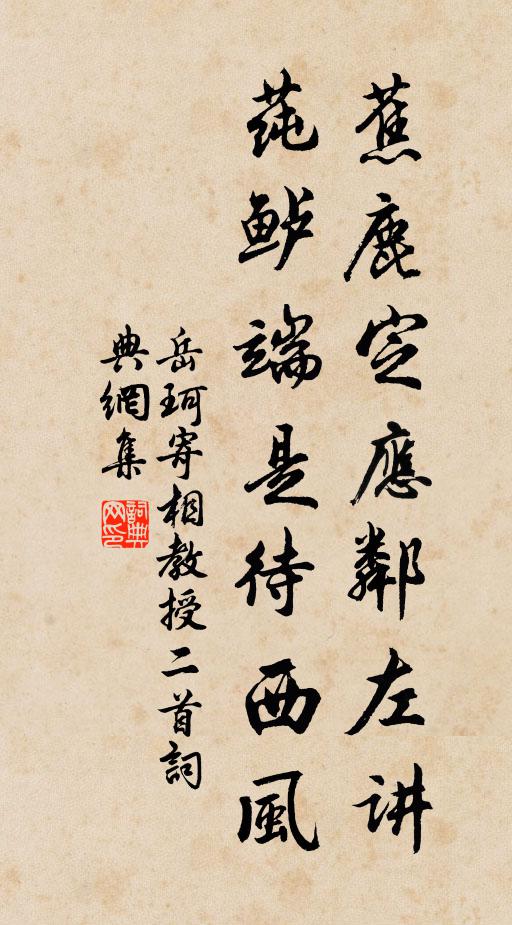 蕉鹿定應鄰左讲
莼鲈端是待西風
岳珂寄相教授二首詞
典網集
詞典网印